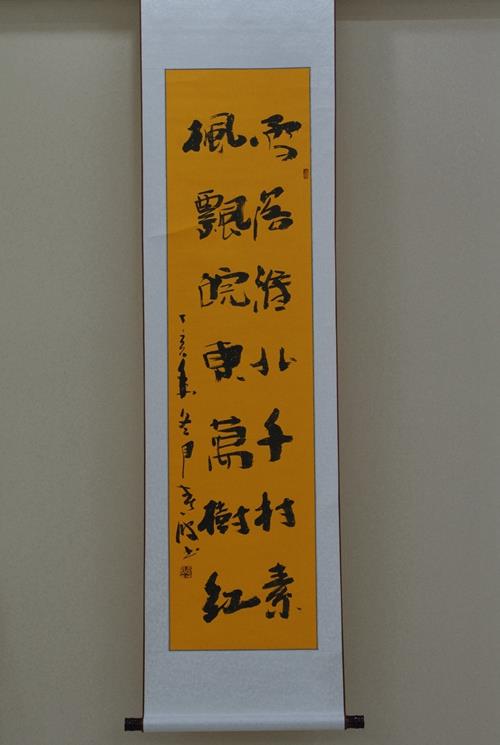 雪落淮北千村素
楓飄皖東萬樹紅
丁亥年冬月书